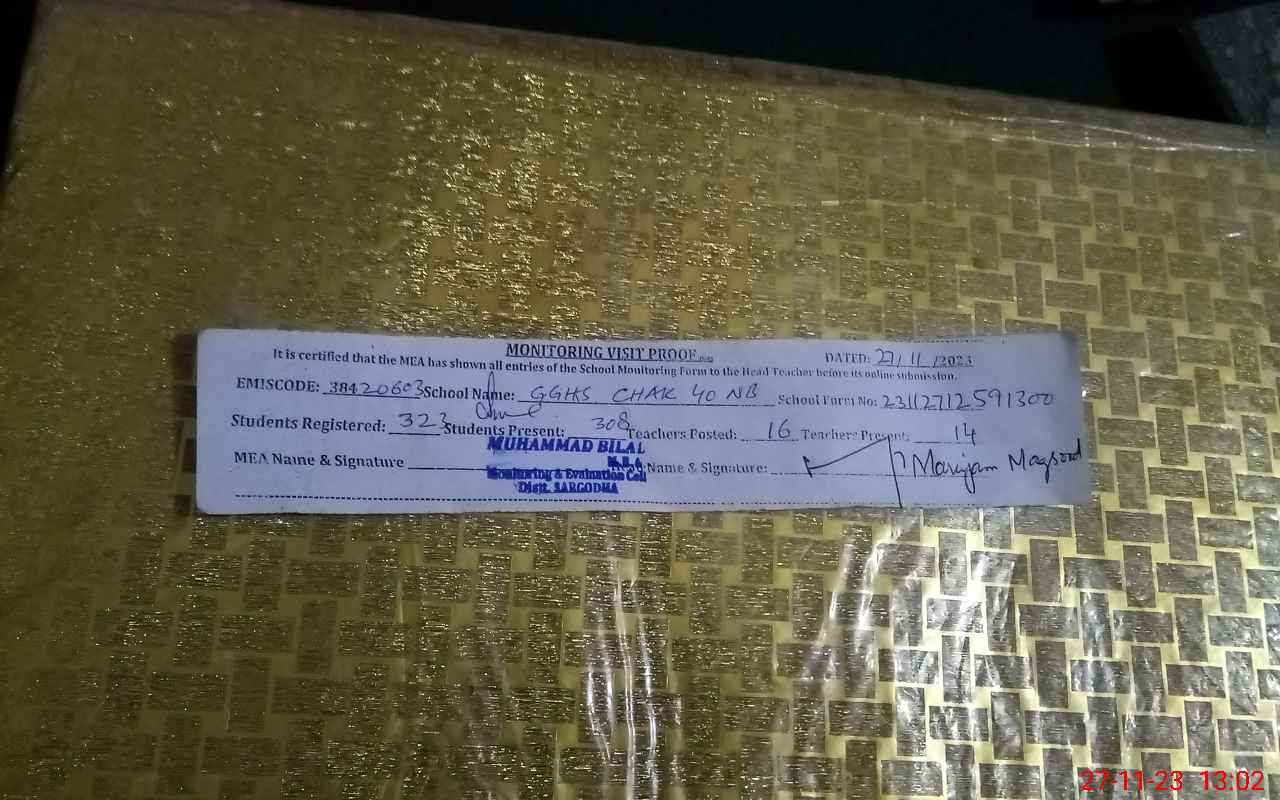 MONITORING VISIT PROOF
DATED: 27/11/2023
It is certified that the MEA has shown all entries of the School Monitoring Form to the Head Teacher before its online submission.
EMISCODE: 38420603 School Name: GGHS CHAK 40 NB School Form No: 23112712591300
Students Registered: 323 Students Present: 308 Teachers Posted: 16 Teachers Present: 14
MEA Name & Signature Name & Signature: Maryam Maqsood
MUHAMMAD BILAL
M.E.A
Monitoring & Evaluation Cell
Distt. SARGODHA
27-11-23 13:02